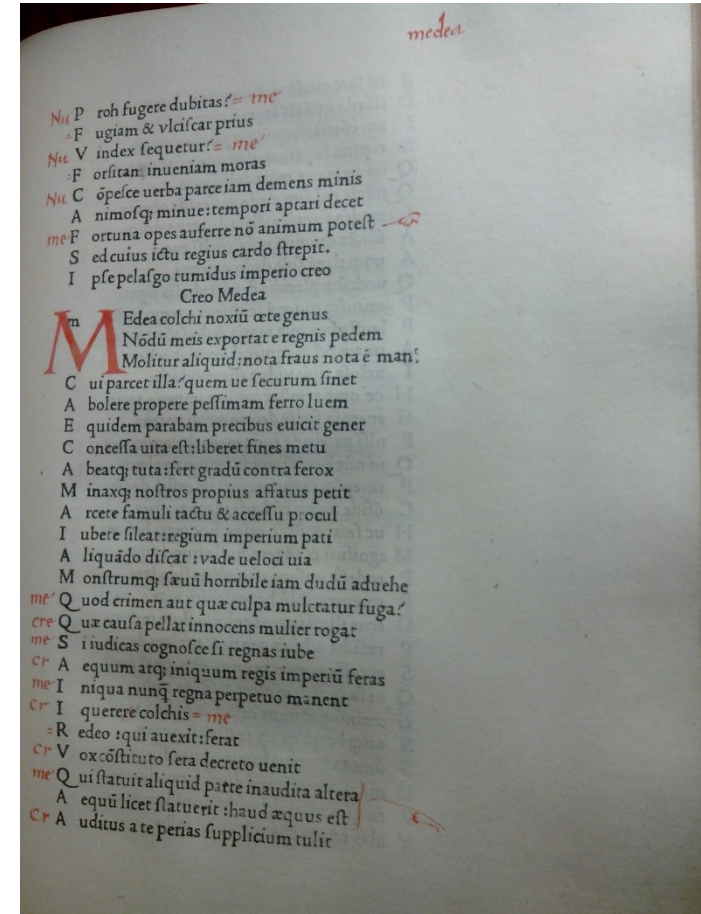 medea
Nu P roh fugere dubitas? = me
= F ugiam & vlciſcar prius
Nu V index ſequetur? = me
= F orſitan inueniam moras
Nu C ōpeſce uerba parce iam demens minis
A nimoſq; minue: tempori aptari decet
me F ortuna opes auferre nō animum poteſt
S ed cuius ictu regius cardo ſtrepit.
I pſe pelaſgo tumidus imperio creo
Creo Medea
M m Edea colchi noxiū œte genus
Nōdū meis exportat e regnis pedem
Molitur aliquid: nota fraus nota ē man⁹
C ui parcet illa? quem ue ſecurum ſinet
A bolere propere peſſimam ferro luem
E quidem parabam precibus euicit gener
C onceſſa uita eſt: liberet fines metu
A beatq; tuta: fert gradū contra ferox
M inaxq; noſtros propius affatus petit
A rcete famuli tactu & acceſſu procul
I ubete ſileat: regium imperium pati
A liquādo diſcat : vade ueloci uia
M onſtrumq; ſæuū horribile iam dudū aduehe
me Q uod crimen aut quæ culpa mulctatur fuga?
cre Q uæ cauſa pellat innocens mulier rogat
me S i iudicas cognoſce ſi regnas iube
Cr A equum atq; iniquum regis imperiū feras
me I niqua nunq̄ regna perpetuo manent
Cr I querere colchis = me
= R edeo : qui auexit: ferat
Cr V ox cōſtituto ſera decreto uenit
me Q ui ſtatuit aliquid parte inaudita altera
A equū licet ſtatuerit : haud æquus eſt
Cr A uditus a te perias ſupplicium tulit